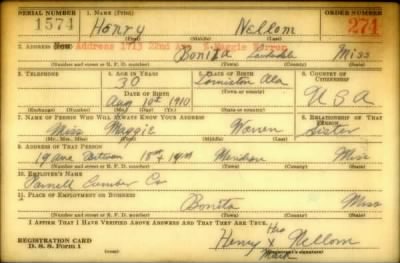 SERIAL NUMBER 1. NAME (Print) ORDER NUMBER
1574 Henry Nellom 274
(First) (Middle) (Last)
2. ADDRESS New Address 1713 22nd Ave
Bonita Lauderdale Miss
(Number and street or R. F. D. number) (Town) (County) (State)
3. TELEPHONE 4. AGE IN YEARS 5. PLACE OF BIRTH 6. COUNTRY OF CITIZENSHIP
30 Ala
DATE OF BIRTH (Town or county)
Aug 10th 1910 U S A
(Exchange) (Number) (Mo.) (Day) (Yr.) (State or country)
7. NAME OF PERSON WHO WILL ALWAYS KNOW YOUR ADDRESS 8. RELATIONSHIP OF THAT PERSON
Miss Maggie Warren Sister
(Mr., Mrs., Miss) (First) (Middle) (Last)
9. ADDRESS OF THAT PERSON
19 Ave Between 18th & 19th Meridian Miss
(Number and street or R. F. D. number) (Town) (County) (State)
10. EMPLOYER'S NAME
Lumber Co
11. PLACE OF EMPLOYMENT OR BUSINESS
Bonita Miss
(Number and street or R. F. D. number) (Town) (County) (State)
I AFFIRM THAT I HAVE VERIFIED ABOVE ANSWERS AND THAT THEY ARE TRUE.
REGISTRATION CARD
D. S. S. Form 1
His
Henry X Nellom
Mark
(Registrant's signature)